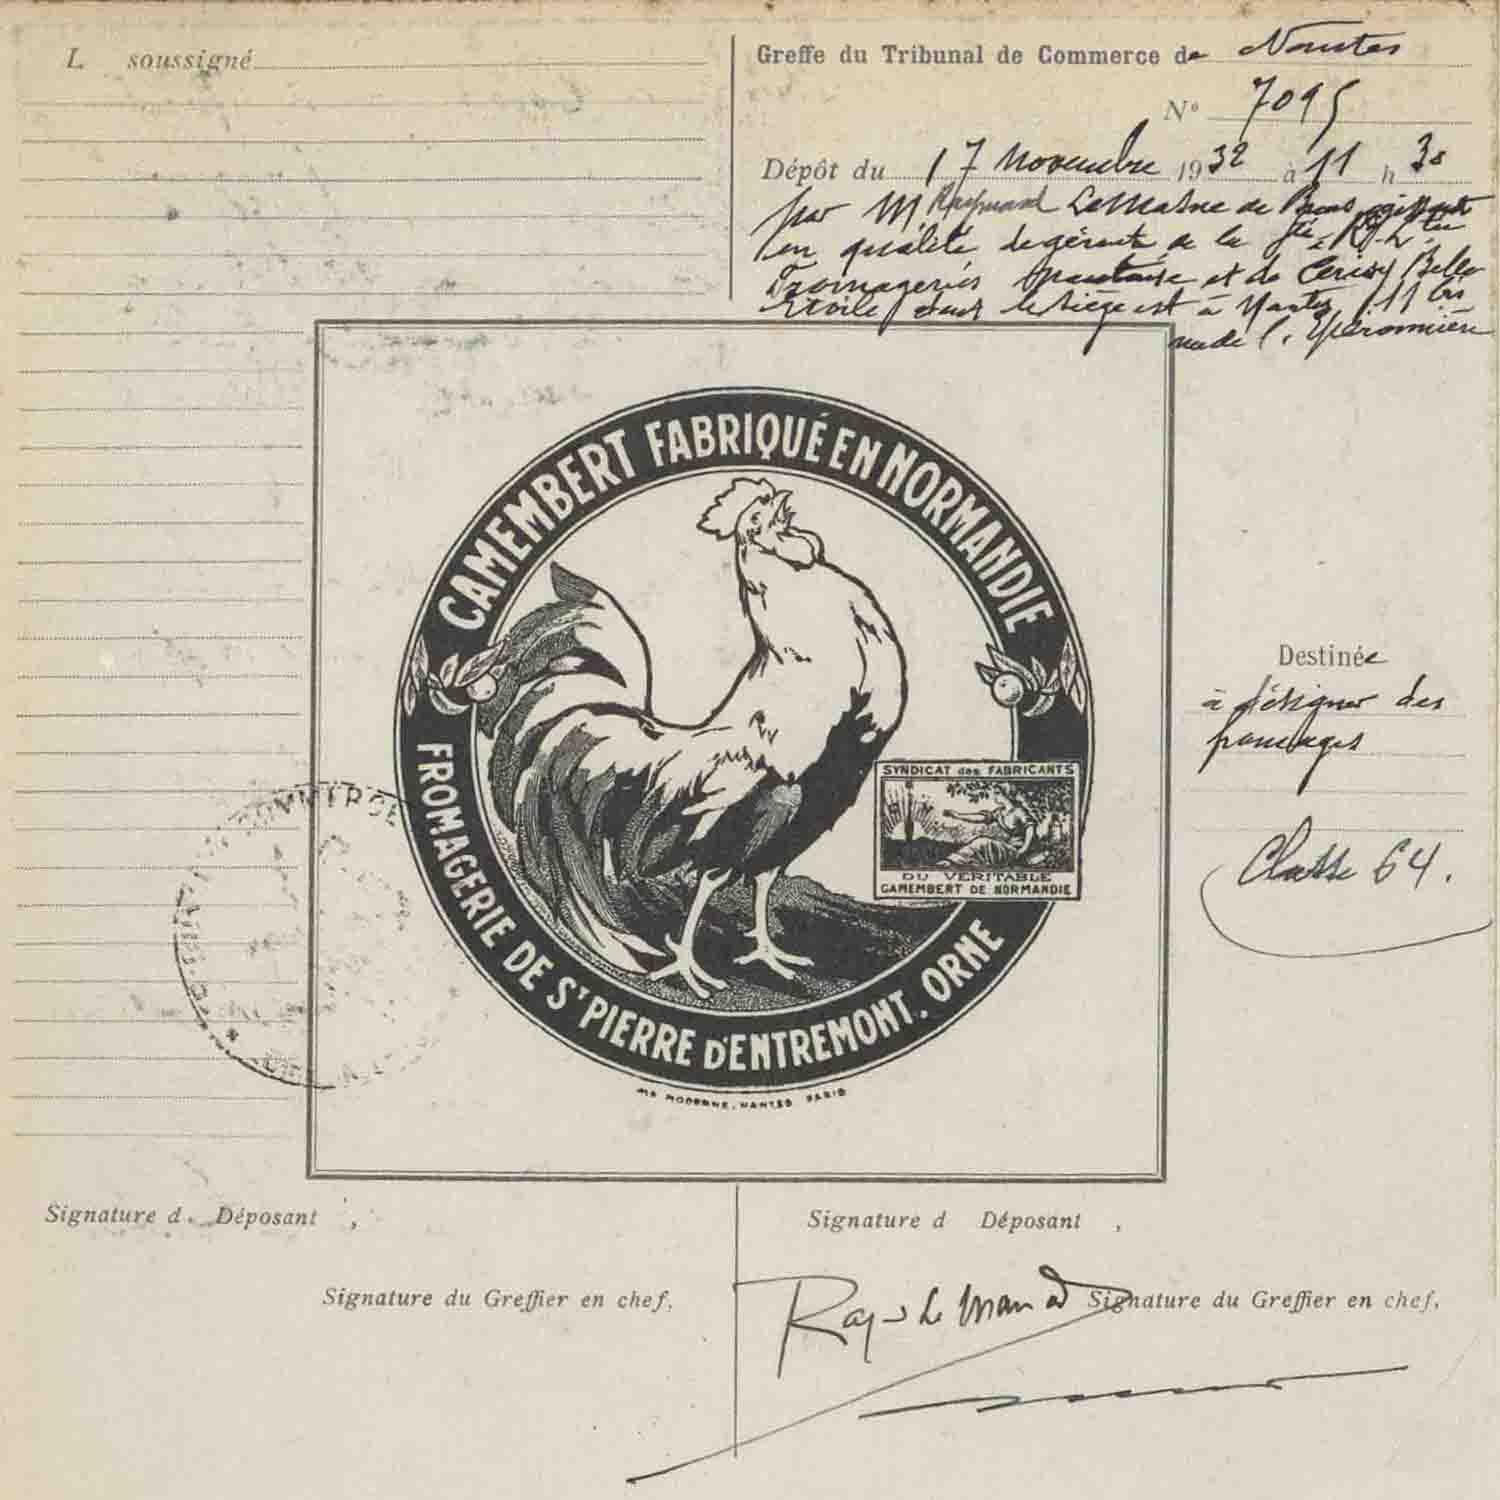 L soussigné
Greffe du Tribunal de Commerce de Nantes
N° 7095
Dépôt du 17 Novembre 1932 à 11 h 30
par M Raymond LeMa de
en qualité de gérant de la Sté R.L. 
Fromageries et de Cerisy Belle
Etoile dont le siège est à Nantes 11 bis
rue de l'Eperonnière
CAMEMBERT FABRIQUÉ EN NORMANDIE
SYNDICAT des FABRICANTS
DU VERITABLE
CAMEMBERT DE NORMANDIE
FROMAGERIE DE St PIERRE D'ENTREMONT. ORNE
IMP MODERNE, NANTES PARIS
Destinée
à désigner des
fromages
Classe 64.
Signature d Déposant ,
Signature du Greffier en chef,
Signature d Déposant ,
Signature du Greffier en chef,